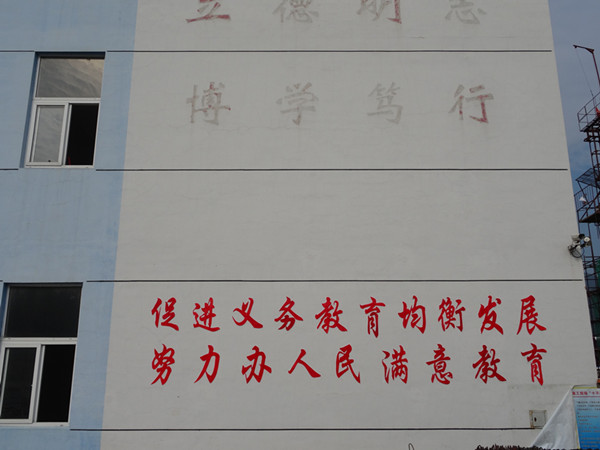 立德明志
博学笃行
促进义务教育均衡发展
努力办人民满意教育